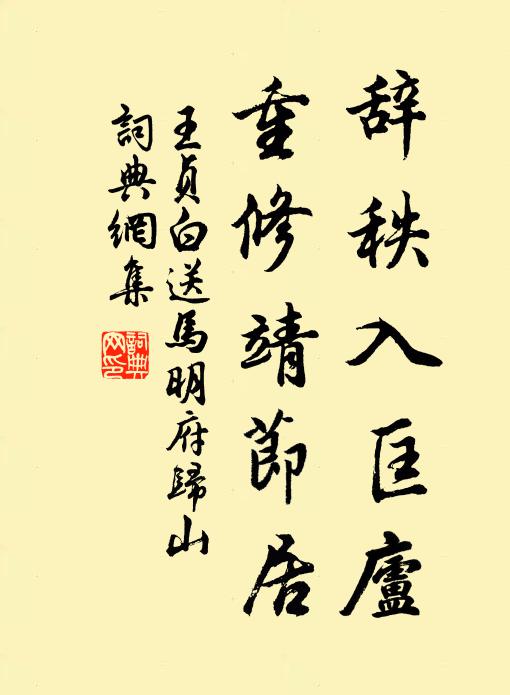 辞秩入匡廬
重修靖節居
王貞白送馬明府歸山
詞典網集
詞典
网印